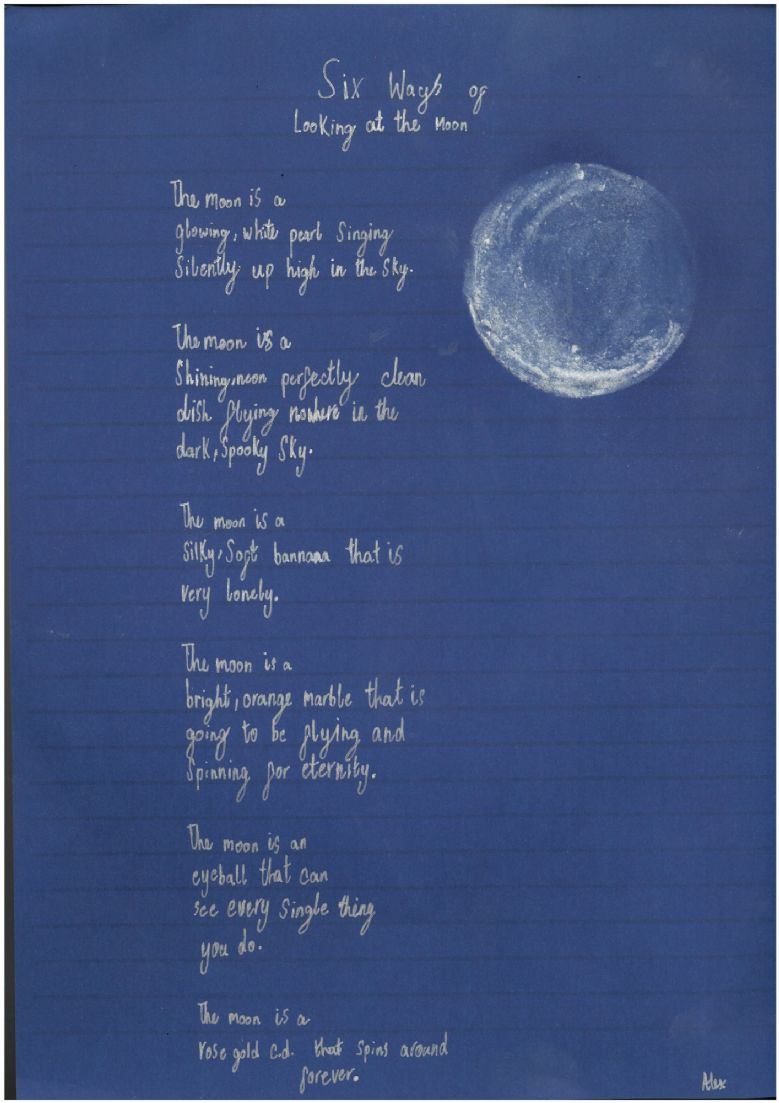 Six Ways of
Looking at the Moon
The moon is a
glowing, white pearl Singing
Silently up high in the Sky.
The moon is a
Shining, neon perfectly clean
dish flying nowhere in the
dark, Spooky Sky.
The moon is a
Silky, Soft bannana that is
very lonely.
The moon is a
bright, orange marble that is
going to be flying and
Spinning for eternity.
The moon is an
eyeball that can
see every Single thing
you do.
The moon is a
rose gold c.d. that spins around
forever.
Alex